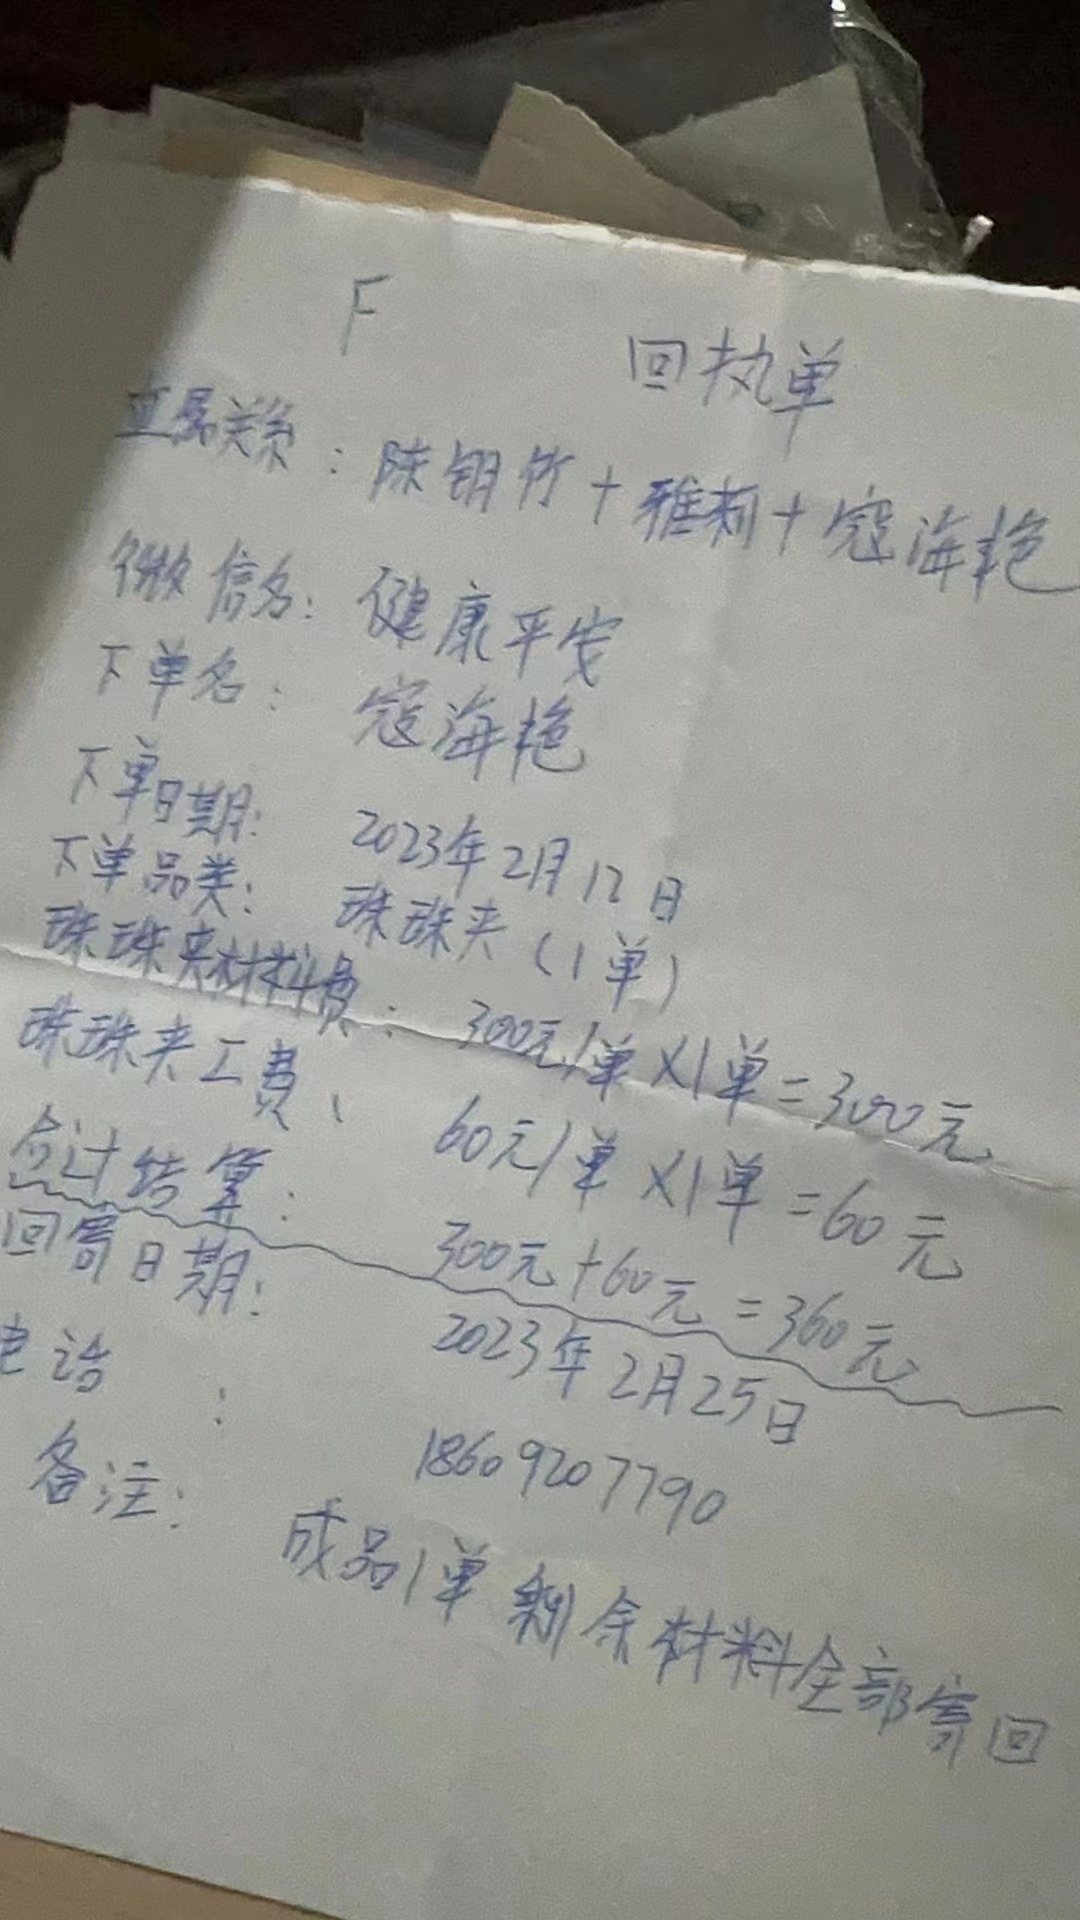 F
回执单
直属关系：陈钥竹+雅莉+寇海艳
微信名：健康平安
下单名：寇海艳
下单日期：2023年2月12日
下单品类：珠珠夹（1单）
珠珠夹材料费：300元/单×1单=300元
珠珠夹工费：60元/单×1单=60元
合计结算：300元+60元=360元
回寄日期：2023年2月25日
电话：18609207790
备注：成品1单剩余材料全部寄回